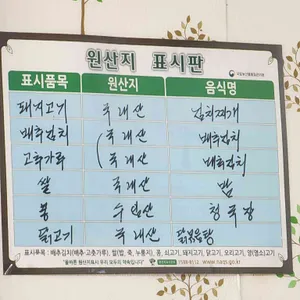 원산지 표시판
국립농산물품질관리원
표시품목 원산지 음식명
돼지고기 국내산 김치찌개
배추김치 국내산 배추김치
고춧가루 국내산 배추김치
쌀 국내산 밥
콩 수입산 청국장
닭고기 국내산 닭볶음탕
표시품목 : 배추김치(배추·고춧가루), 쌀(밥, 죽, 누룽지), 콩, 쇠고기, 돼지고기, 닭고기, 오리고기, 양(염소)고기
"올바른 원산지표시 우리 모두의 약속입니다"
1588-8112, www.naqs.go.kr